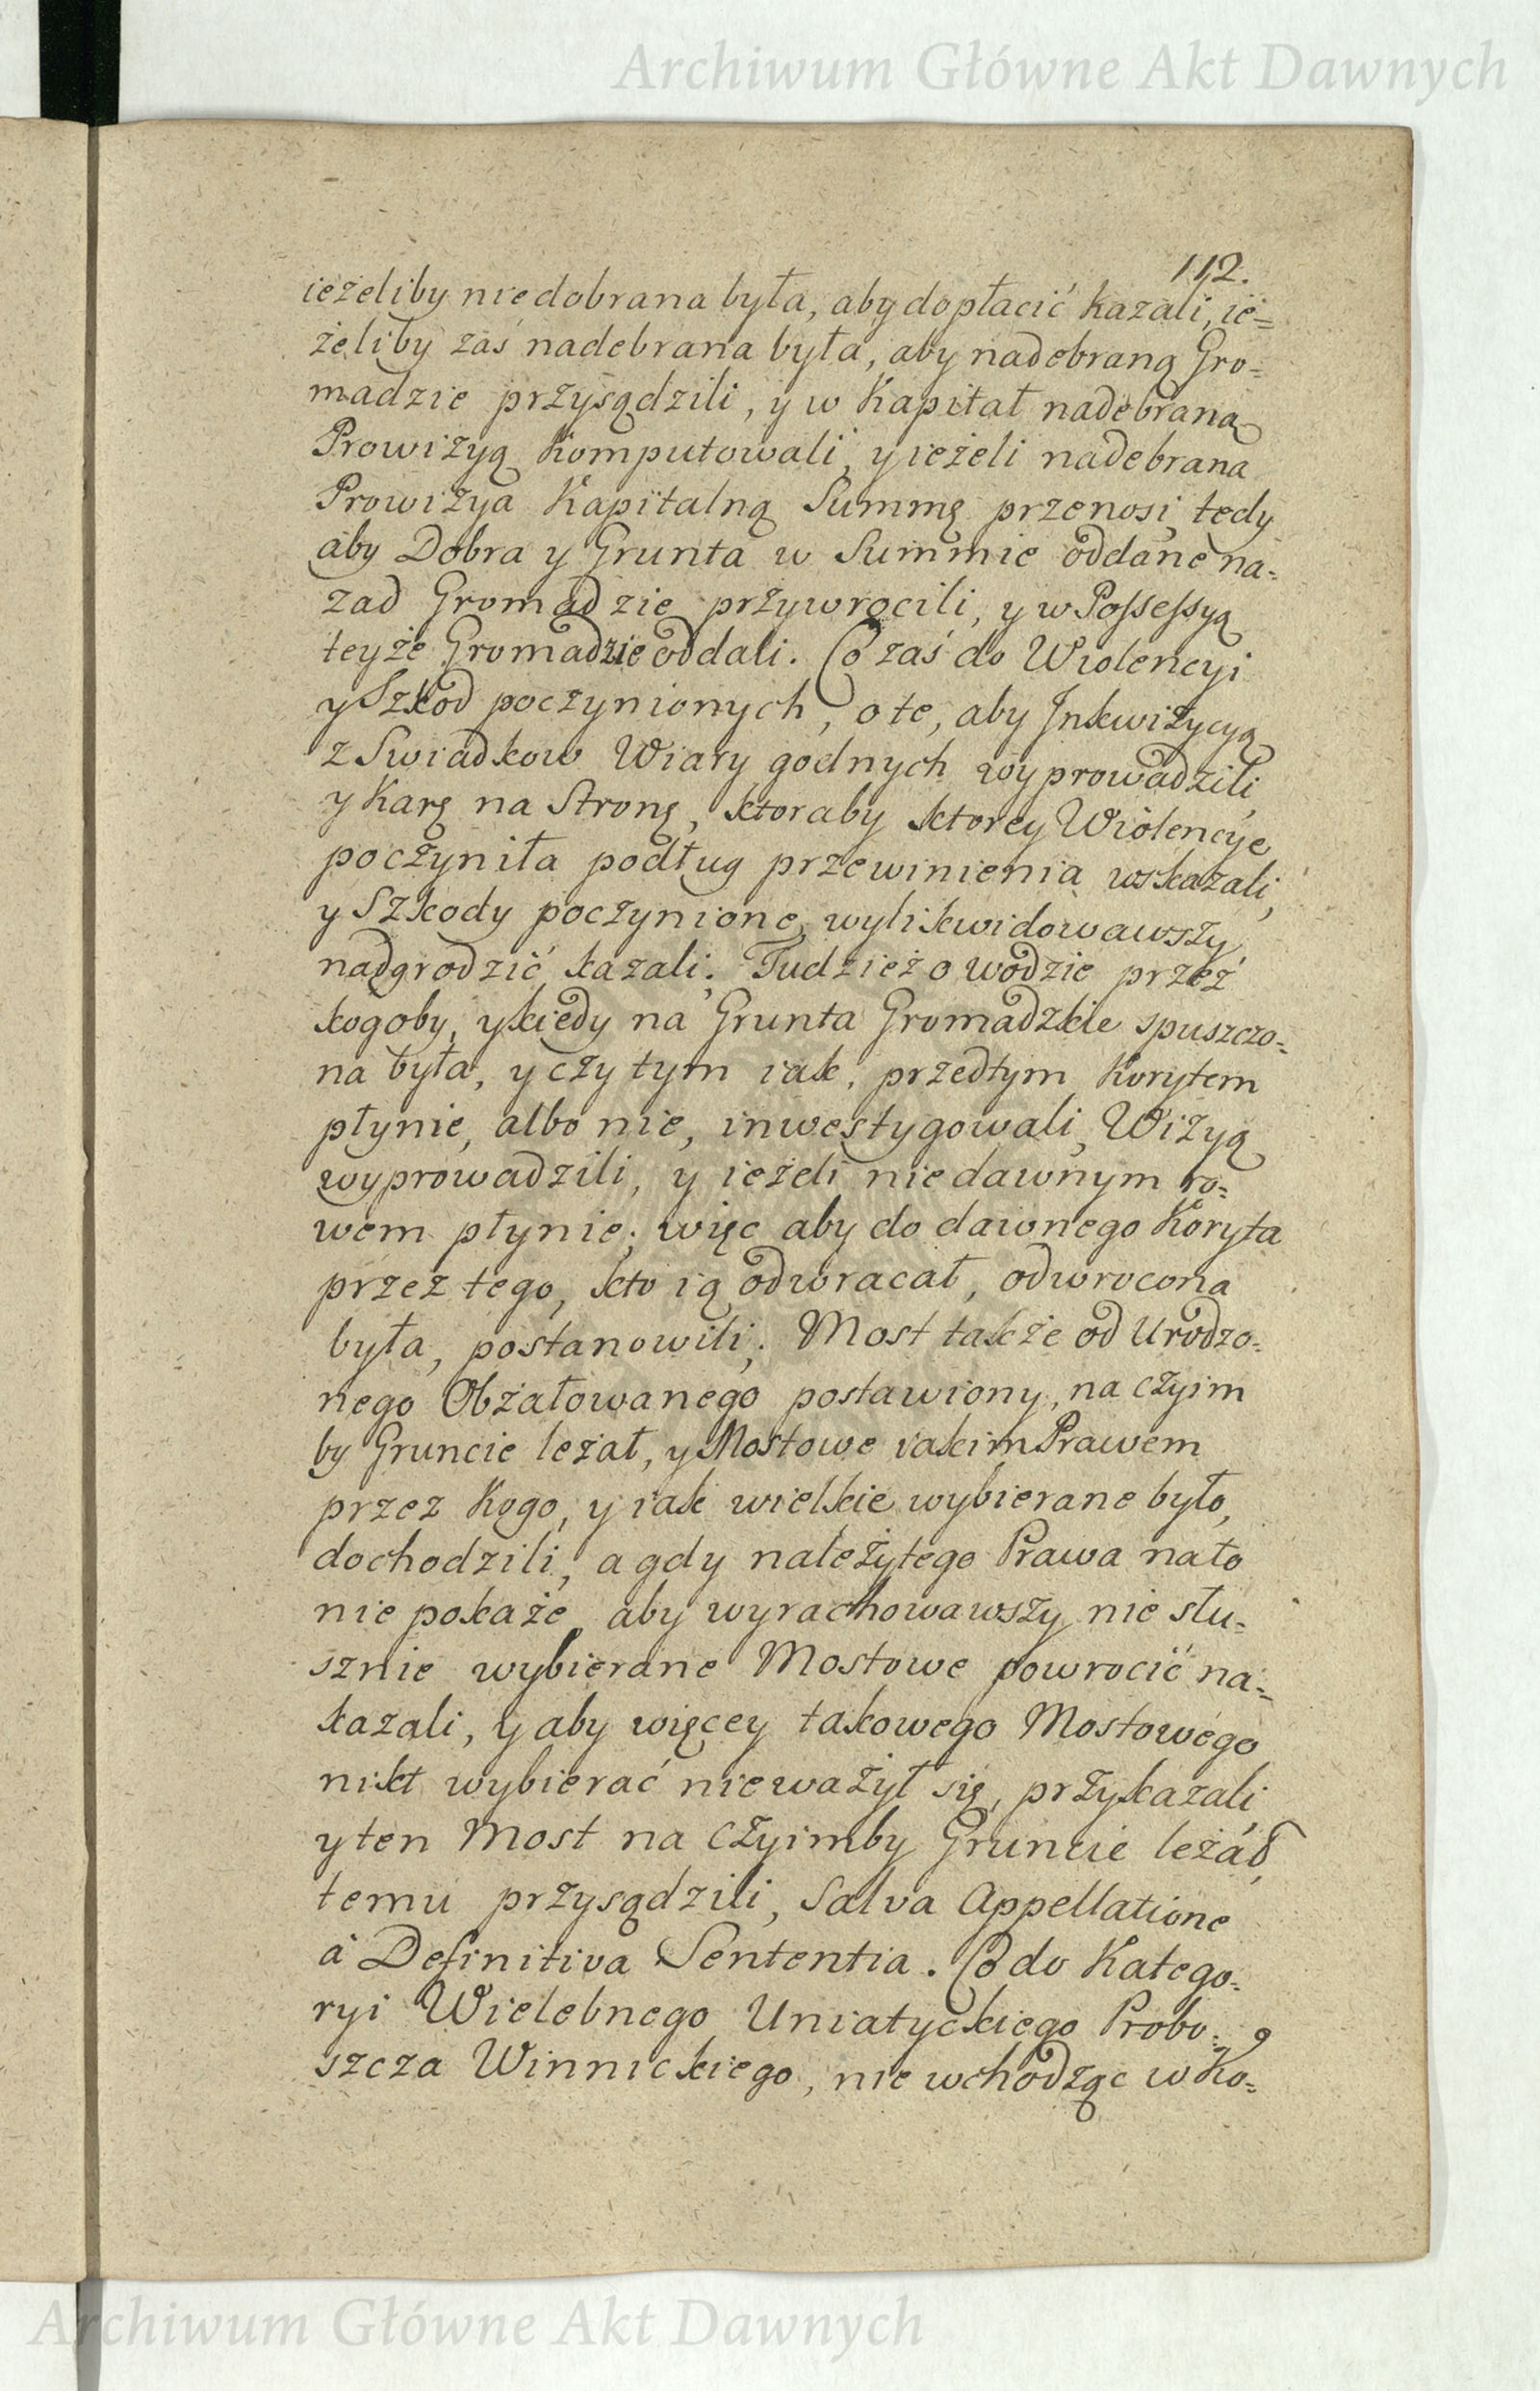 Archiwum Główne Akt Dawnych
112.
ieżeliby niedobrana była, aby dopłacić kazali, ie=
żeliby zaś nadebrana była, aby nadebraną Gro=
madzie przysądzili, y w Kapitał nadebraną
Prowizyą Komputowali, y ieżeli nadebrana
Prowizya Kapitalną Summę przenosi, tedy
aby Dobra y Grunta w Summie oddane na=
zad Gromadzie przywrocili, y w Possessyą
teyże Gromadzie oddali. Co zaś do Wiolencyi
y Szkod poczynionych, o te, aby Inkwizycyą
z Swiadkow Wiary godnych wyprowadzili,
y Karę na Stronę, ktoraby ktorey Wiolencye
poczyniła podług przewinienia wskazali,
y Szkody poczynione, wylikwidowawszy
nadgrodzić kazali; Tudzież o wodzie przez
kogoby, y kiedy na Grunta Gromadzkie spuszczo=
na była, y czy tym iak, przedtym Korytem
płynie, albo nie, inwestygowali, Wizyą
wyprowadzili, y ieżeli nie dawnym ro=
wem płynie; więc aby do dawnego Koryta
przez tego, kto ią odwracał, odwrocona
była, postanowili; Most także od Urodzo=
nego Obżałowanego postawiony, na czyim
by Gruncie leżał, y Mostowe iakim Prawem
przez Kogo, y iak wielkie wybierane było,
dochodzili, a gdy należytego Prawa na to
nie pokaże, aby wyrachowawszy nie słu=
sznie wybierane Mostowe powrocić na=
kazali, y aby więcey takowego Mostowego
nikt wybierać nieważył się, przykazali
y ten Most na czyimby Gruncie leżał,
temu przysądzili, Salva Appellatione
à Definitiva Sententia. Co do Katego=
ryi Wielebnego Uniatyckiego Probo=
szcza Winnickiego, nie wchodząc w Ko=
Archiwum Główne Akt Dawnych